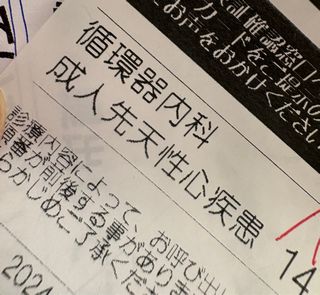 計確認窓口
カードをご提示の
お声をおかけください
循環器内科
成人先天性心疾患
14
診療内容によって、お呼び出し
順番が前後する事があります
らかじめご了承くださ
2024